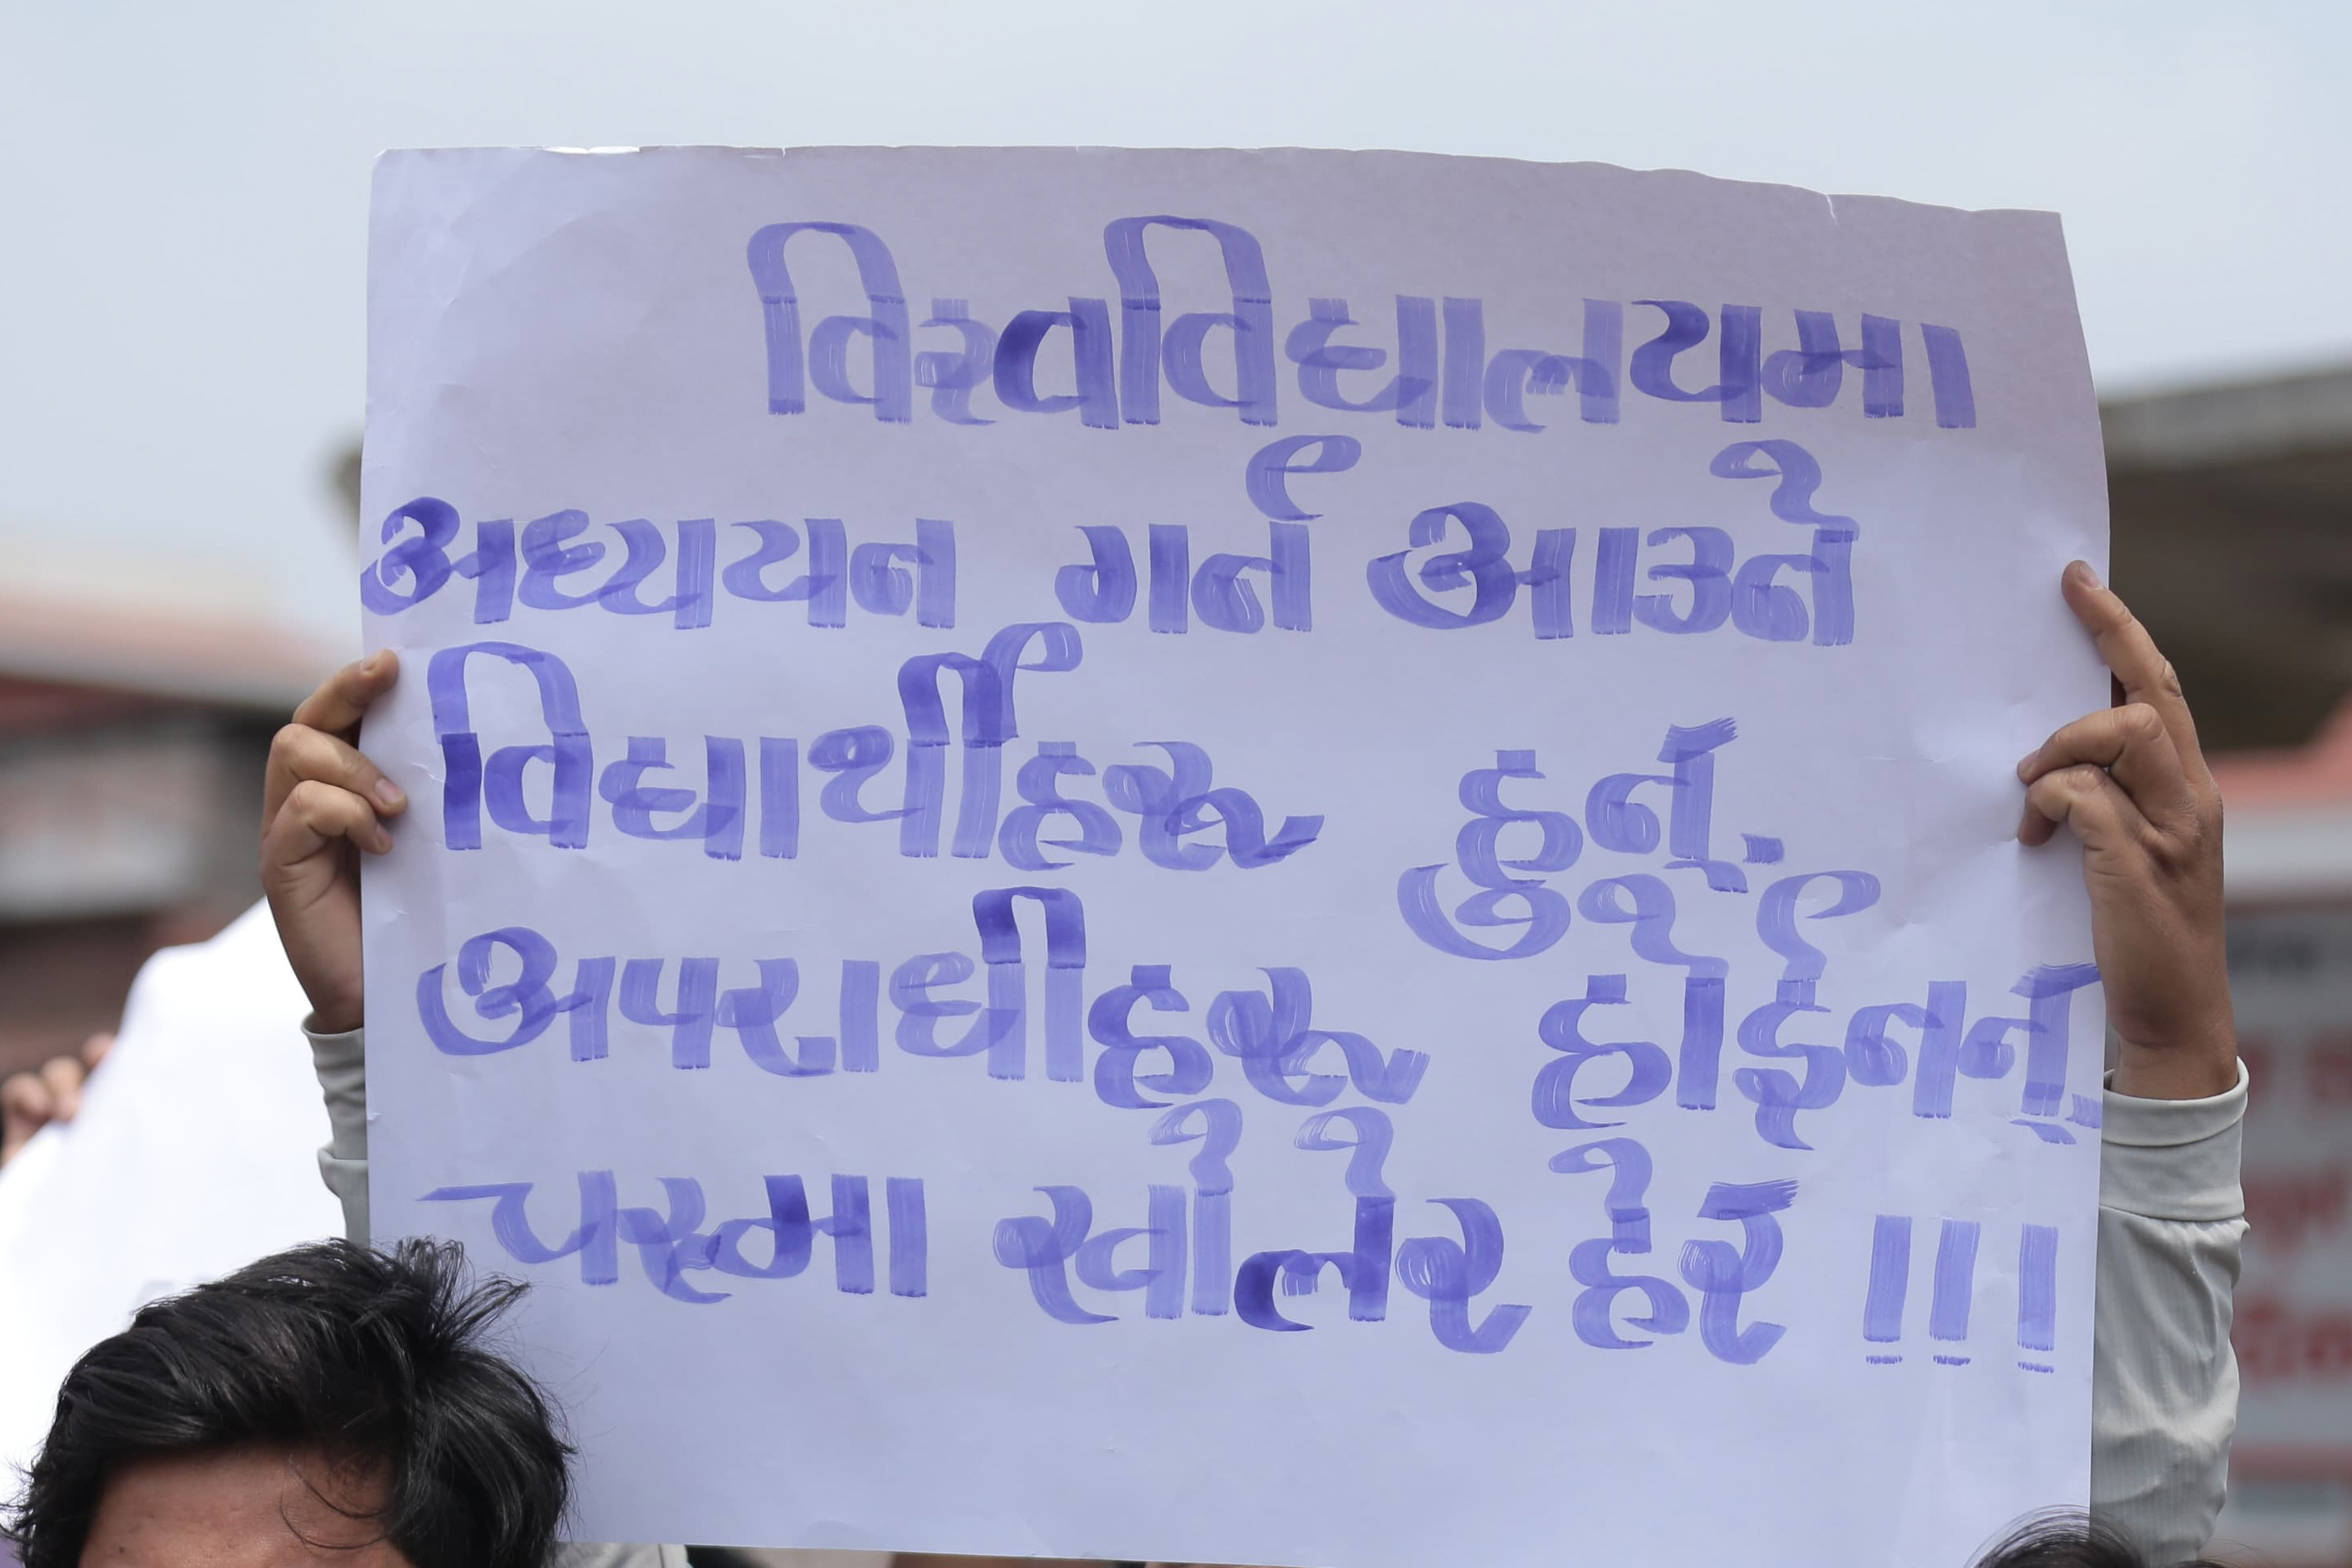 विश्वविद्यालयमा
अध्ययन गर्न आउने
विद्यार्थीहरू हुन्.
अपराधीहरू होईनन्.
चस्मा खोलेर हेर् !!!